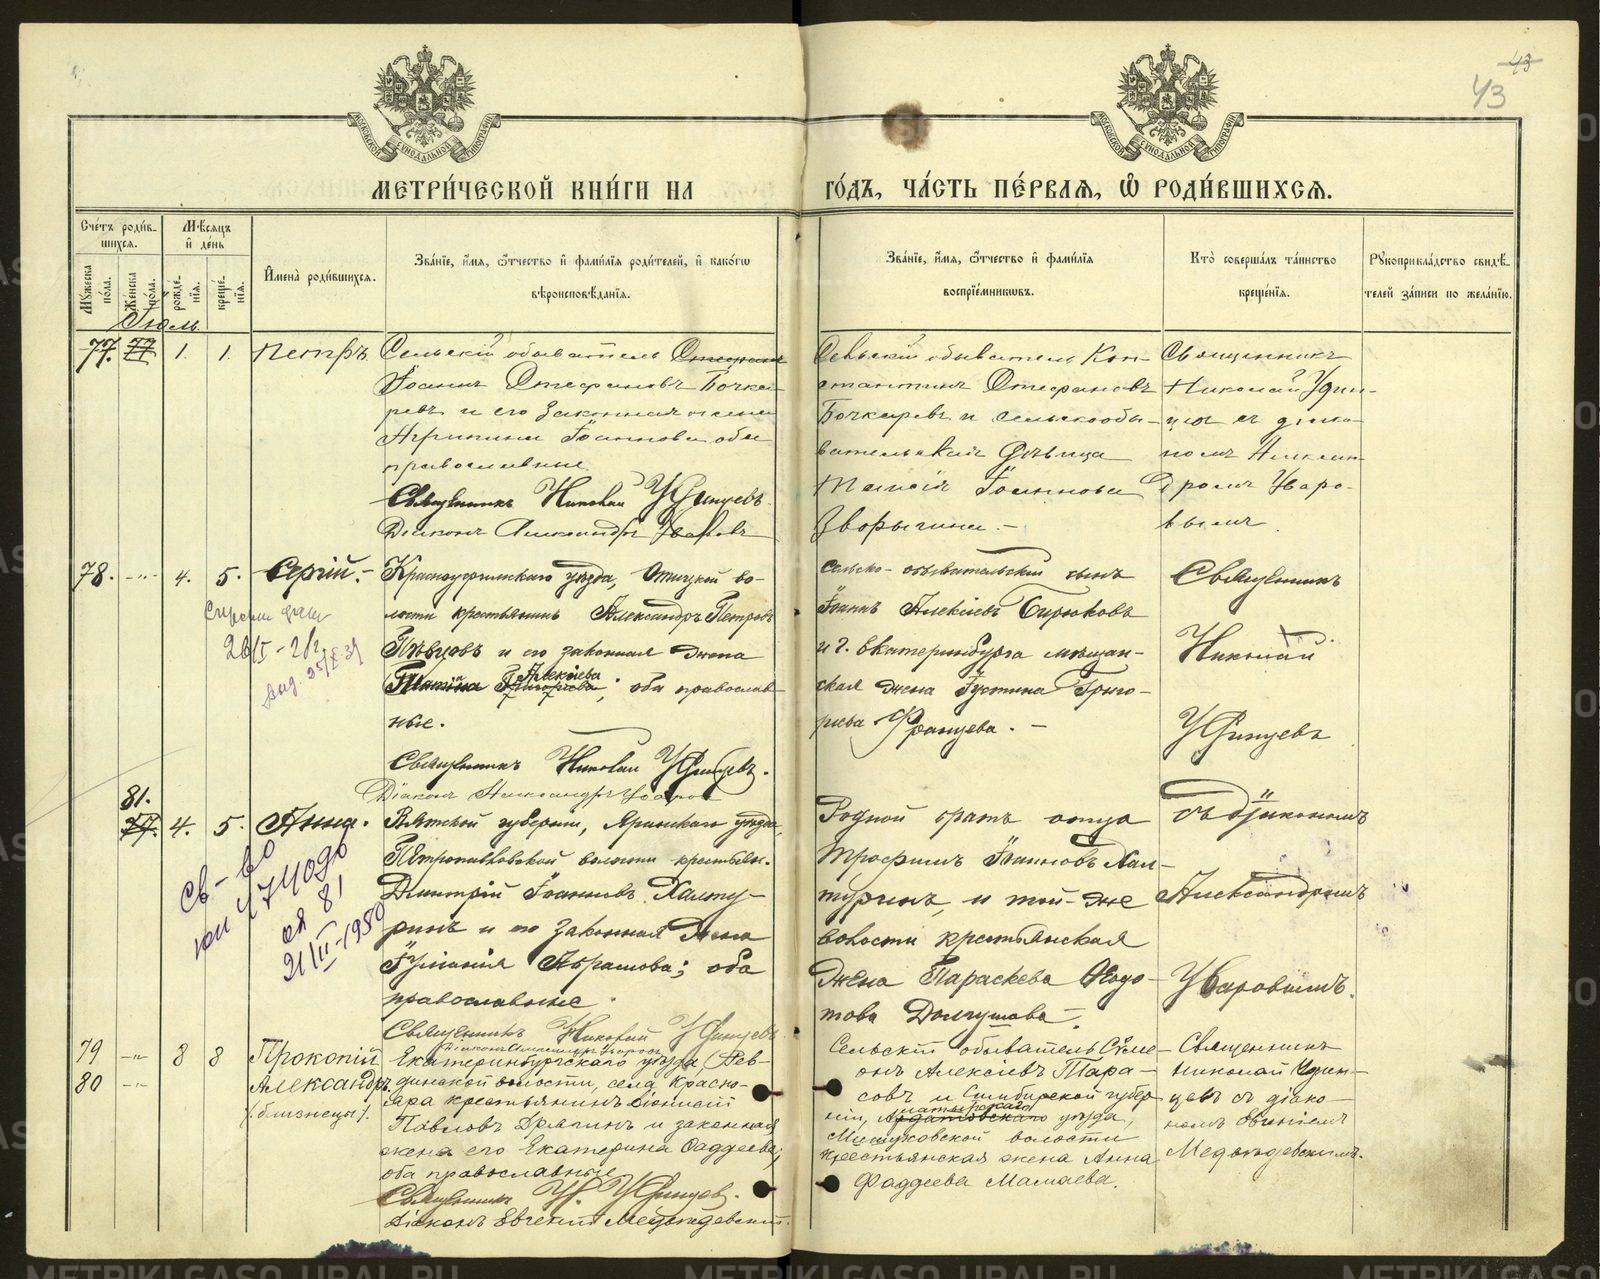 43
43
МОСКОВСКОЙ СѴНОДАЛЬНОЙ ТИПОГРАФІИ
МОСКОВСКОЙ СѴНОДАЛЬНОЙ ТИПОГРАФІИ
МЕТРИ́ЧЕСКОЙ КНИ́ГИ НА
ГО́ДЪ, ЧА́СТЬ ПЕ́РВАЯ, Ѽ РОДИ́ВШИХСЯ.
Сче́тъ роди́вшихся.
Му́жеска по́ла.
Же́нска по́ла.
Мѣ́сяцъ и҆ де́нь
рожде́нїя.
креще́нїя.
И҆мена̀ роди́вшихся.
Зва́нїе, и҆́мя, ѻ҆́тчество и҆ фами́лїя роди́телей, и҆ како́гѡ вѣроисповѣ́данїя.
Зва́нїе, и҆́мя, ѻ҆́тчество и҆ фами́лїя воспрїе́мникѡвъ.
Кто̀ соверша́лъ та́инство креще́нїя.
Рꙋкоприкла́дство свидѣ́телей за́писи по жела́нїю.
Іюль
77. 77 1. 1. Петръ
Сельскій обыватель Стефанъ
Іоаннъ Стефановъ Бочка-
ревъ и его законная жена
Агрипина Іоаннова оба
православные
Священникъ Николай Удинцевъ
Діаконъ Александръ Уваровъ
Сельскій обыватель Кон-
стантинъ Стефановъ
Бочкаревъ и сельскообы-
вательская дѣвица
Таисія Іоаннова
Зворыгина. –
Священникъ
Николай Удин-
цев съ діако-
номъ Алексан-
дромъ Уваро-
вымъ.
78. -"- 4. 5. Сергій. –
Красноуфимскаго уѣзда, во-
лости крестьянинъ Александръ Петровъ
Пѣвцовъ и его законная жена
Алексіева
Григорьева; оба православ-
ные.
Священникъ Николай Удинцевъ.
Діаконъ Александръ Уваровъ
Сельско-обывательскій сынъ
Іоаннъ Алексіевъ Бирюковъ
и г. Екатеринбурга мѣщан-
ская жена Іустина Григо-
рьева Францева. –
Священникъ
Николай
Удинцевъ
81.
77. 4. 5. Анна.
Вятской губерніи, Яранскаго уѣзда,
Петропавловской волости крестьян.
Дмитрій Іоанновъ Халту-
ринъ и его законная жена
Іуліанія Абрамова; оба
православные.
Священникъ Николай Удинцевъ
Діаконъ Александръ Уваровъ
Св-во
21/III-1950
Родной братъ отца
Трофимъ Іоанновъ Хал-
туринъ, и той-же
волости крестьянская
жена Параскева Ѳедо-
това Долгушова –.
съ діакономъ
Александромъ
Уваровымъ.
79 -"- 8 8 Прокопій
80 -"- Александръ.
(близнецы).
Екатеринбургскаго уѣзда,
волости, села Красно-
яра крестьянинъ Діонисій
Павловъ Дряпинъ и законная
жена его Екатерина Фаддеева;
оба православные
Священникъ Н. Удинцев.
Діаконъ Евгеній Медвѣдевскій.
Сельскій обыватель Сѵме-
онъ Алексіевъ Тара-
совъ и Симбирской губер-
ніи, Ардатовскаго уѣзда,
волости
крестьянская жена Анна
Фаддеева Мамаева.
Священникъ
Николай Удин-
цевъ съ діако-
номъ Евгеніемъ
Медвѣдевскимъ.